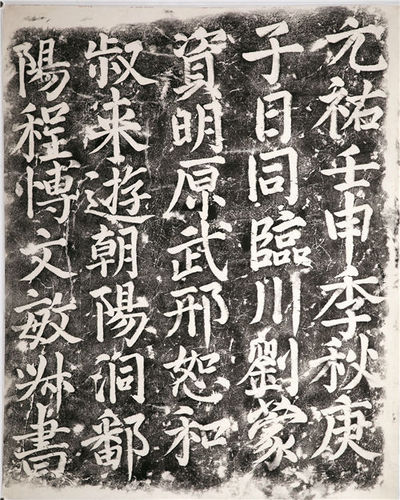 元祐壬申季秋庚
子日同臨川劉蒙
資明原武邢恕和
叔来遊朝陽洞鄱
陽程博文敏叔書